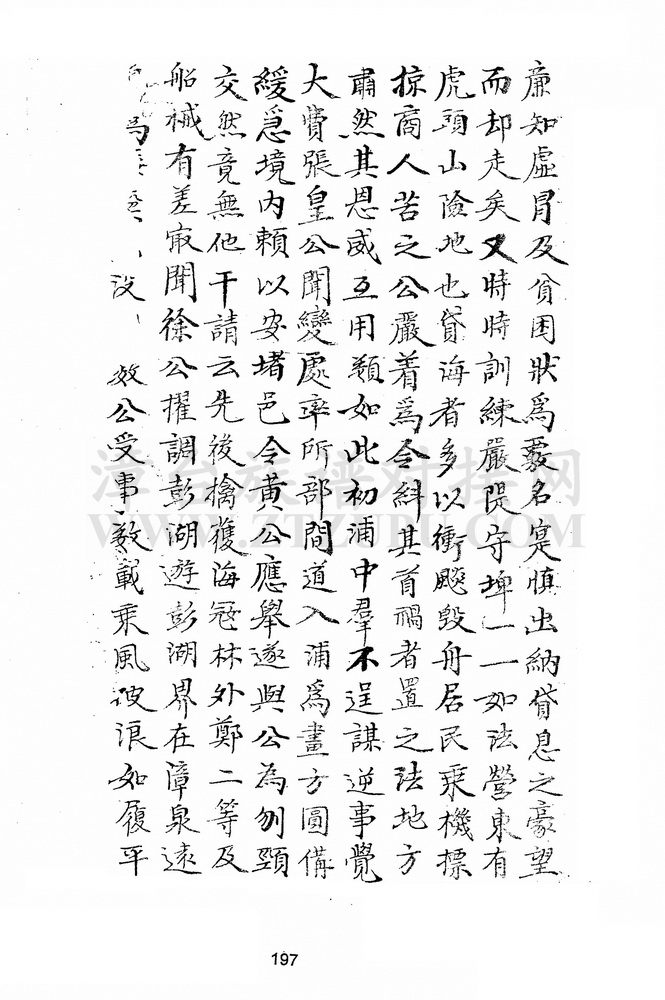 廉知虛冒及貧困狀為覈名寔慎出納貸息之豪望
而却走矣又時時訓練嚴隄守埤一一如法營東有
虎頭山險地也貸海者多以衝飈毀舟居民乘機摽
掠商人苦之公嚴着為令糾其首禍者置之法地方
肅然其恩威互用類如此初浦中羣不逞謀逆事覺
大費張皇公聞變處率所部間道入浦為畫方圓俻
緩急境内賴以安堵邑令黃公應舉遂與公為刎頸
交然竟無他干請云先後擒獲海冦林外鄭二等及
船械有差㝡聞徐公擢調彭湖遊彭湖界在漳泉遠
島 没 敖公受事数載乘風破浪如履平
漳台族譜对接网
WWW.ZTZUPU.COM
197